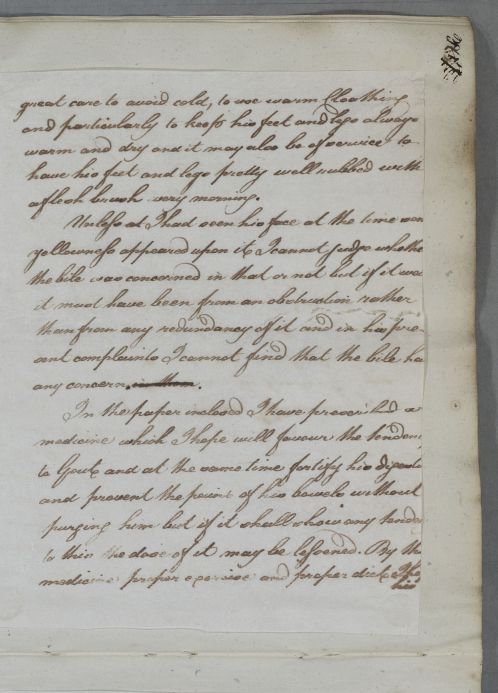 great care to avoid cold, to use warm Cloathing
and particularly to keep his feet and legs always
warm and dry and it may also be of service to
have his feet and legs pretty well rubbed with
a flesh brush every morning.
Unless I had seen his face at the time when
yellowness appeared upon it I cannot judge whethe
the bile was concerned in that or not but if it was
it must have been from an obstruction rather
than from any redundancy of it and in his pre-
sent complaints I cannot find that the bile ha
any concern in them.
In the paper inclosed I have prescribed a
medicine which I hope will favour the tenden
to Gout and at the same time fortify his digestio
and prevent the pains of his bowels without
purging him but if it shall show any tenden
to this the dose of it may be lessened. By th
medicine proper exercise and proper diet
his